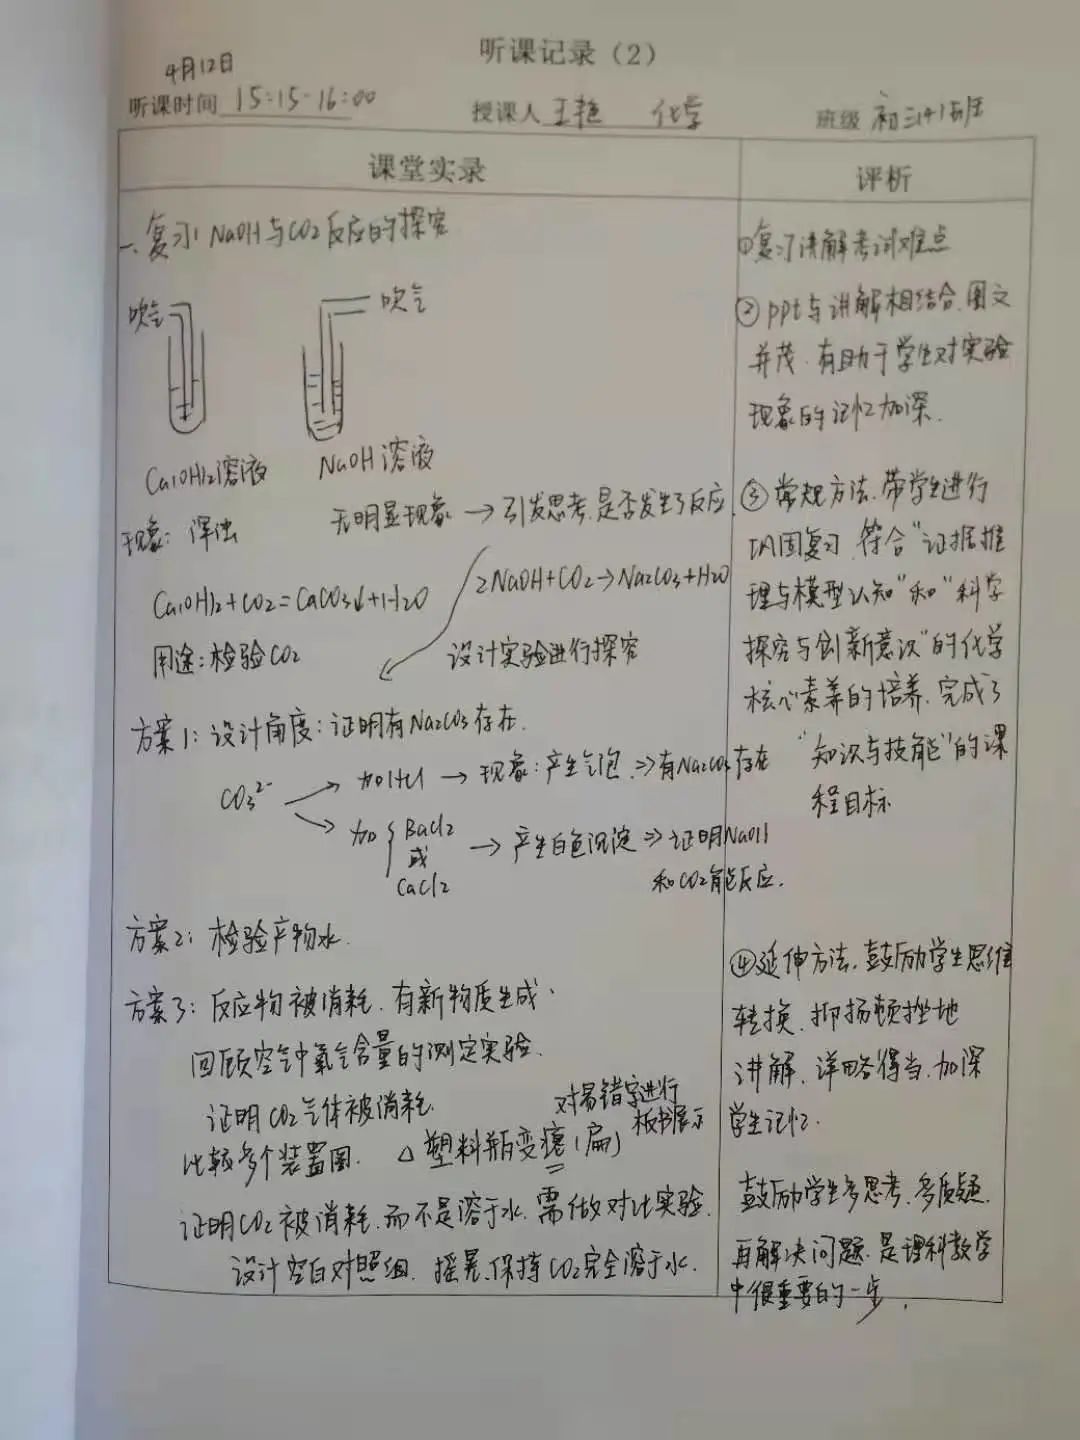 听课记录（2）
4月12日
听课时间 15:15-16:00 授课人 王艳 化学 班级 初三(4)班
课堂实录
一、复习 NaOH与CO2反应的探究
吹气 吹气
Ca(OH)2溶液 NaOH溶液
现象：浑浊 无明显现象→引发思考,是否发生了反应
Ca(OH)2+CO2=CaCO3↓+H2O 2NaOH+CO2→Na2CO3+H2O
用途:检验CO2 设计实验进行探究
方案1：设计角度：证明有Na2CO3存在.
CO3²⁻ 加HCl→现象：产生气泡⇒有Na2CO3存在
加{BaCl2
或 →产生白色沉淀⇒证明NaOH
CaCl2 和CO2能反应.
方案2：检验产物水.
方案3：反应物被消耗.有新物质生成.
回顾空气中氧气含量的测定实验.
证明CO2气体被消耗. 对易错字进行
板书展示
比较多个装置图. △塑料瓶变瘪(扁)
证明CO2被消耗.而不是溶于水.需做对比实验.
设计空白对照组.摇晃.保持CO2完全溶于水.
评析
①复习讲解考试难点
②ppt与讲解相结合.图文
并茂.有助于学生对实验
现象的记忆加深.
③常规方法.带学生进行
巩固复习.符合“证据推
理与模型认知”和“科学
探究与创新意识”的化学
核心素养的培养.完成了
“知识与技能”的课
程目标
④延伸方法.鼓励学生思维
转换.抑扬顿挫地
讲解.详略得当.加深
学生记忆.
鼓励学生多思考.多质疑.
再解决问题.是理科教学
中很重要的一步.